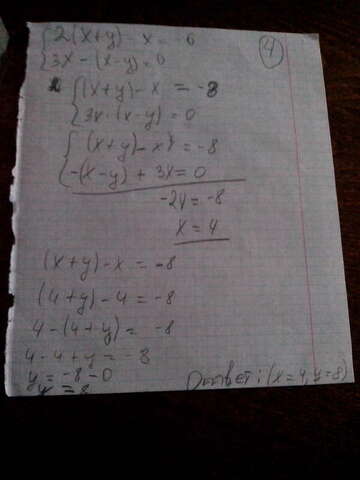 {2(x+y)-x=-6
{3x-(x-y)=0
④
{(x+y)-x=-8
{3x-(x-y)=0
{(x+y)-x=-8
{-(x-y)+3x=0
-2x=-8
x=4
(x+y)-x=-8
(4+y)-4=-8
4-(4+y)=-8
4-4+y=-8
y=-8-0
y=8
Ответ: (x=4, y=8)